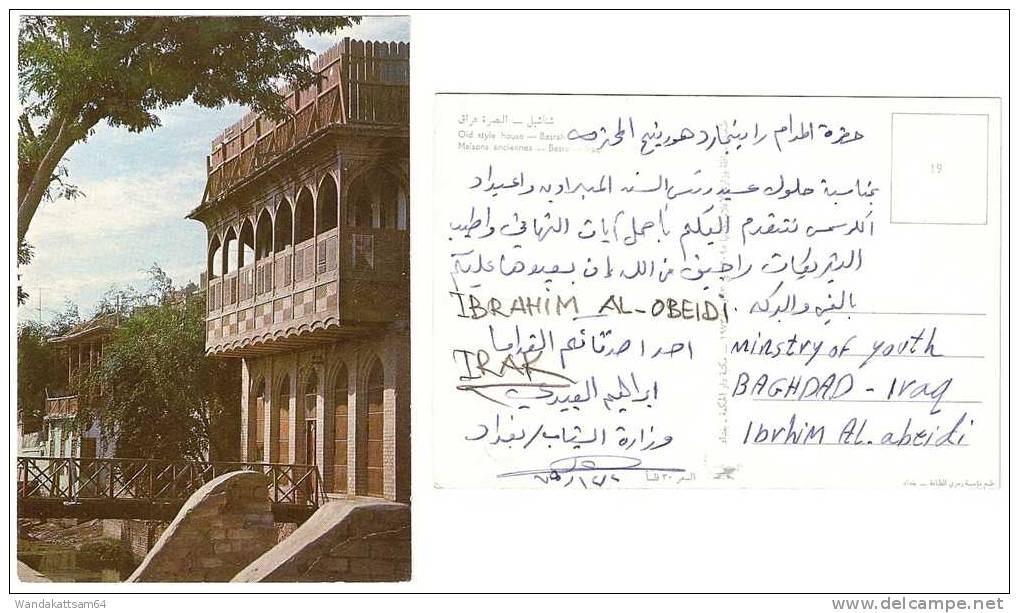 شناشيل — البصرة عراق
Old style house — Basrah
Maisons anciennes — Basra — Iraq
حضرة المدام راينجارد هورينج المحترمه
19
بمناسبة حلول عيد رئس السنه الميلاديه واعياد
الكرسمس نتقدم اليكم بأجمل آيات التهاني واطيب
التبريكات راجين من الله ان يعيدها عليكم
بالخير والبركه
IBRAHIM AL-OBEIDI
احد اصدقائكم القداما
IRAK
ابراهيم العبيدي
وزارة الشباب / بغداد
السعر ٣٠ فلساً
minstry of youth
BAGHDAD - Iraq
Ibrhim AL.abeidi
طبع مؤسسة رمزي للطباعة — بغداد
Wandakattsam64
http://www.delcampe.net